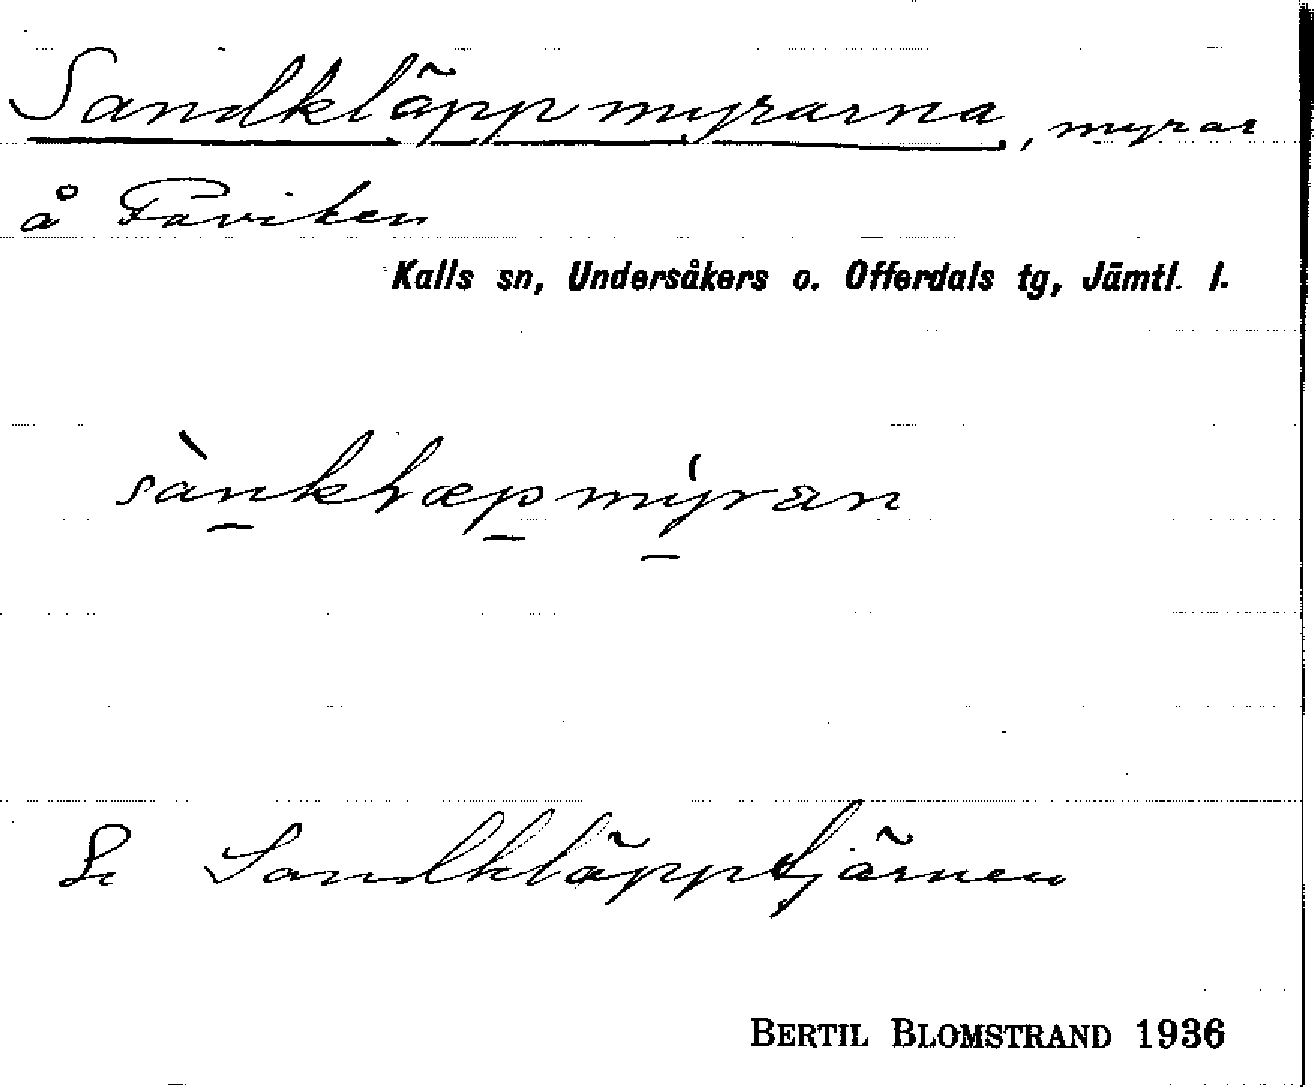 Sandkläppmyrarna, myrar
å Fäviken
Kalls sn, Undersåkers o. Offerdals tg, Jämtl. l.
Se Sandkläpptjärnen
BERTIL BLOMSTRAND 1936